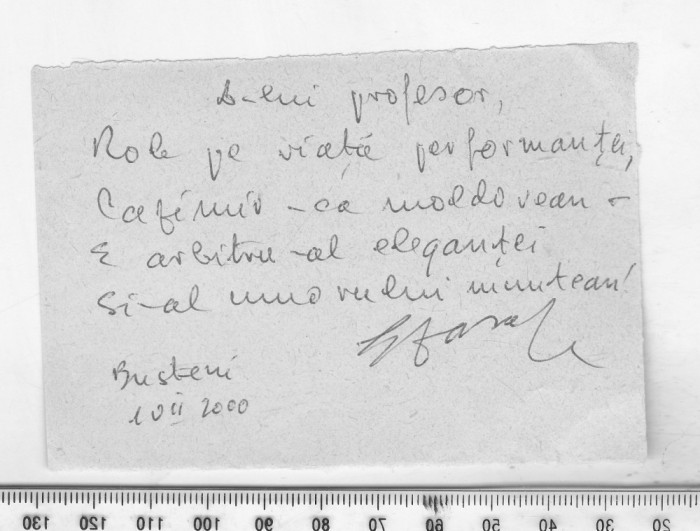 D-lui profesor,
Rob pe viață performanței,
Cazimir -ca moldovean -
E arbitru-al eleganței
Si-al umorului muntean!
Busteni
1 VII 2000
130 120 110 100 90 80 70 60 50 40 30 20